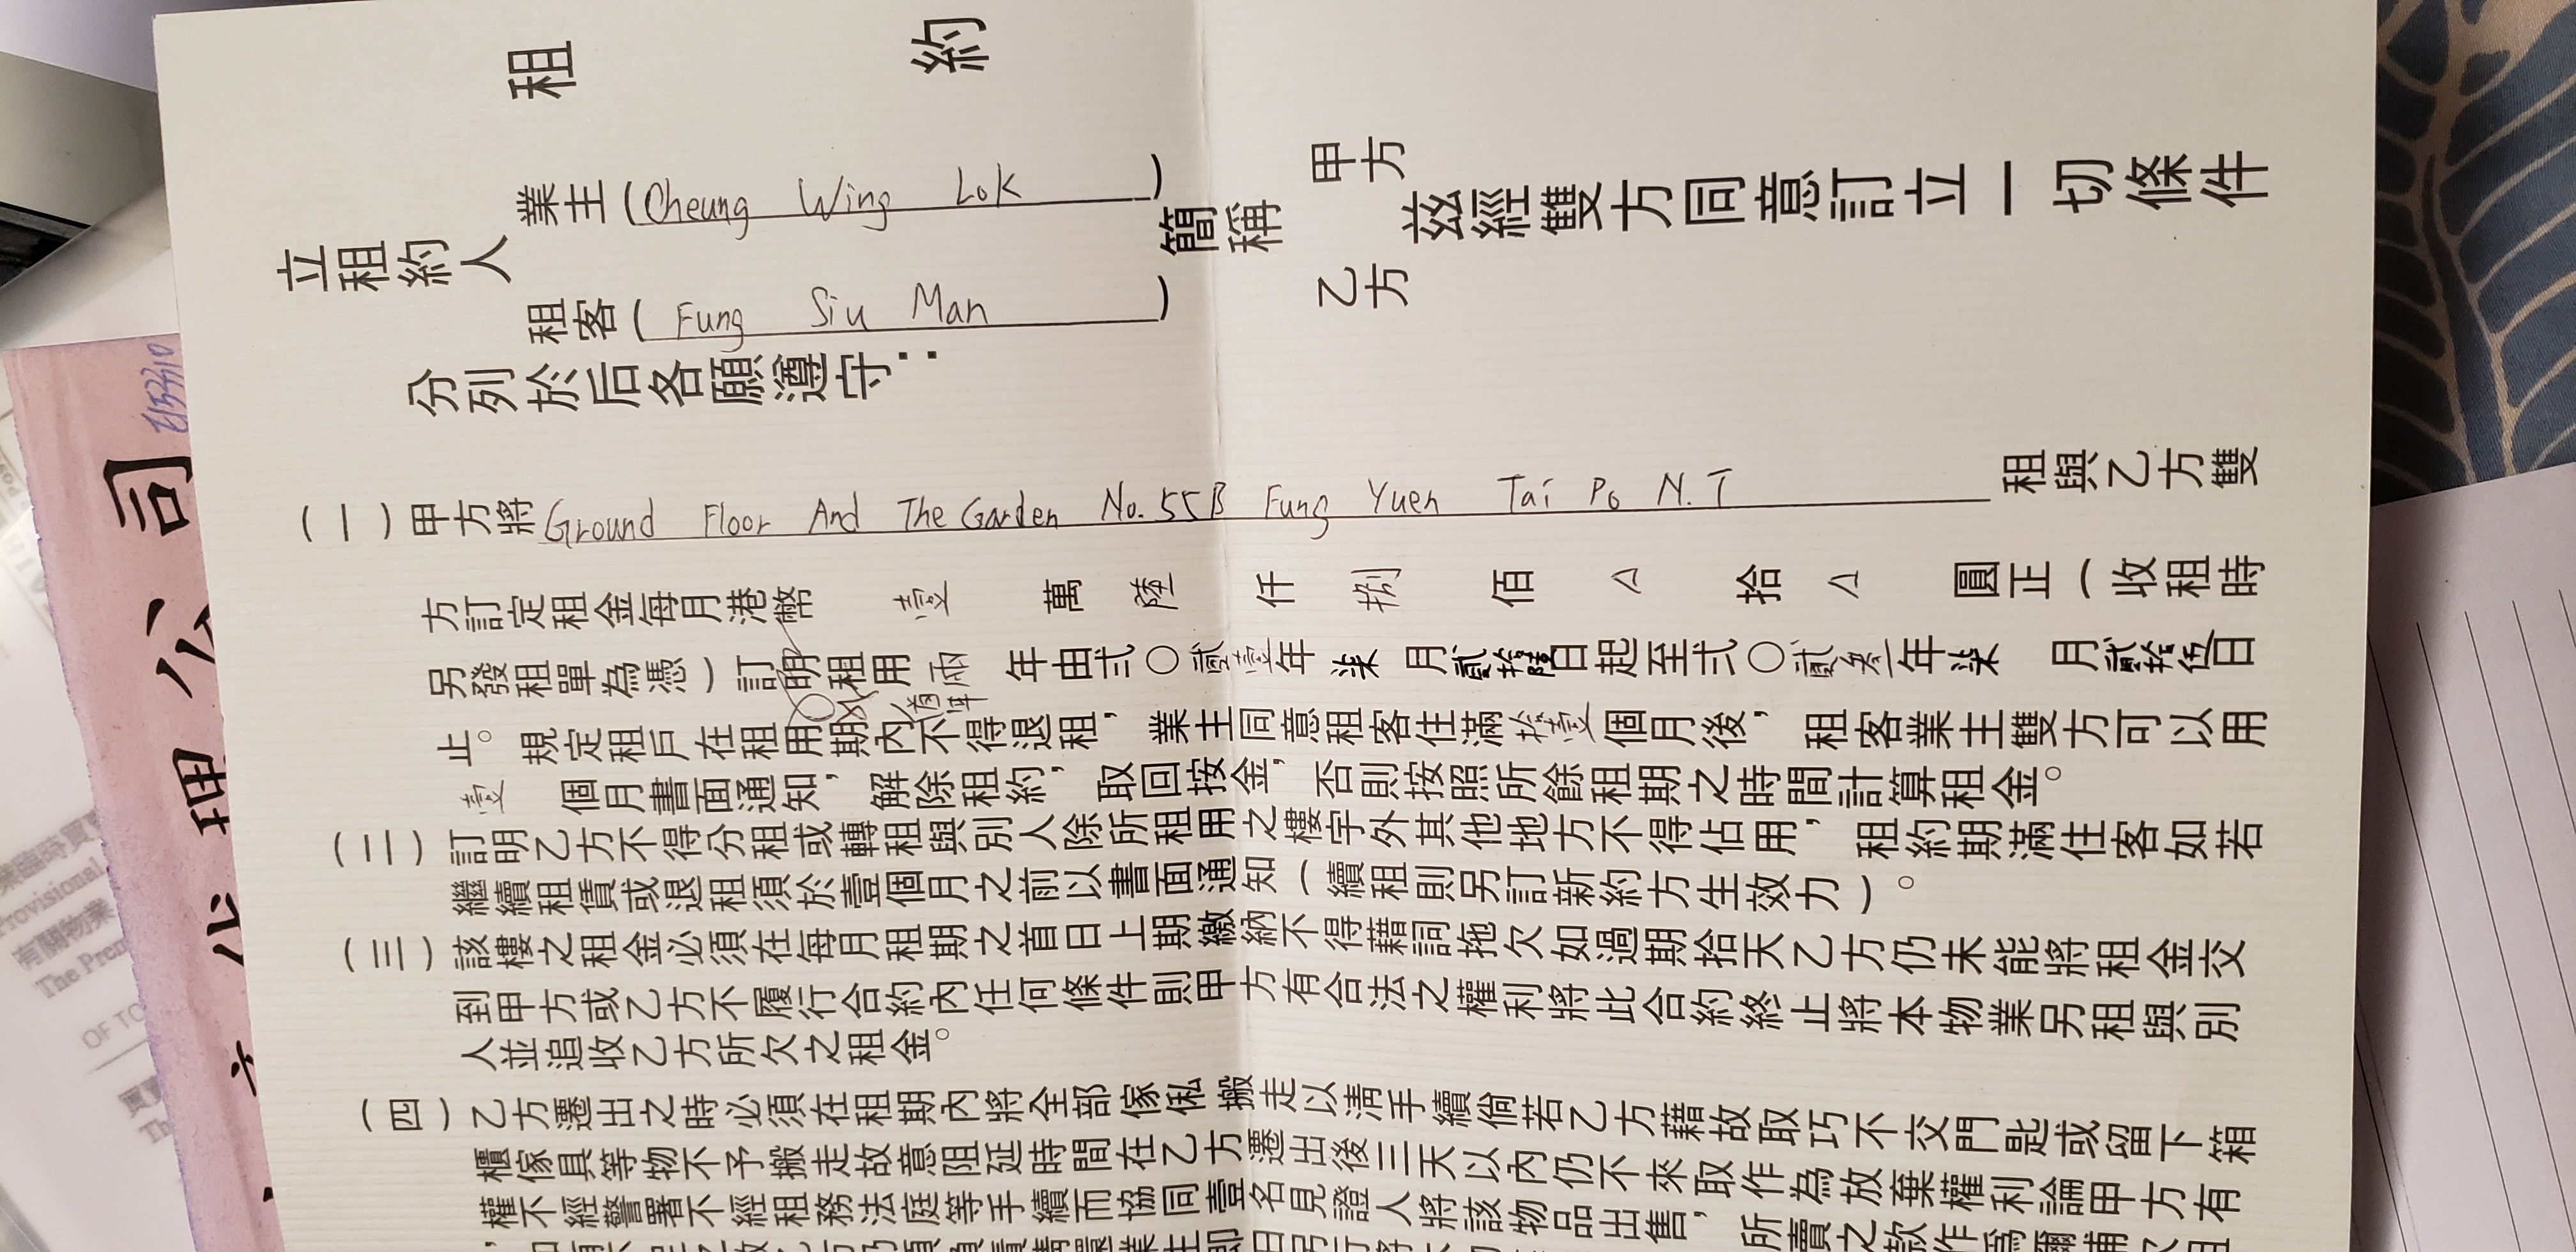 租約
立租約人
業主(Cheung Wing Lok)
租客(Fung Siu Man)
簡稱
甲方
乙方
茲經雙方同意訂立一切條件
分列於后各願遵守：
(一)甲方將Ground Floor And The Garden No. 55B Fung Yuen Tai Po N.T租與乙方雙
方訂定租金每月港幣壹萬陸仟捌佰 拾 圓正(收租時
另發租單為憑)訂明租用兩年由弍〇貳壹年柒月貳拾陸日起至弍〇貳叁年柒月貳拾伍日
止。規定租戶在租用期內不得退租，業主同意租客住滿拾壹個月後，租客業主雙方可以用
壹個月書面通知，解除租約，取回按金，否則按照所餘租期之時間計算租金。
(二)訂明乙方不得分租或轉租與別人除所租用之樓宇外其他地方不得佔用，租約期滿住客如若
繼續租賃或退租須於壹個月之前以書面通知(續租則另訂新約方生效力)。
(三)該樓之租金必須在每月租期之首日上期繳納不得藉詞拖欠如過期拾天乙方仍未能將租金交
到甲方或乙方不履行合約內任何條件則甲方有合法之權利將此合約終止將本物業另租與別
人並追收乙方所欠之租金。
(四)乙方遷出之時必須在租期內將全部傢俬搬走以淸手續倘若乙方藉故取巧不交門匙或留下箱
櫃傢具等物不予搬走故意阻延時間在乙方遷出後三天以內仍不來取作為放棄權利論甲方有
權不經警署不經租務法庭等手續而協同壹名見證人將該物品出售，所賣之款作爲彌補欠租
司
公
理
代
Provisional
有關物業